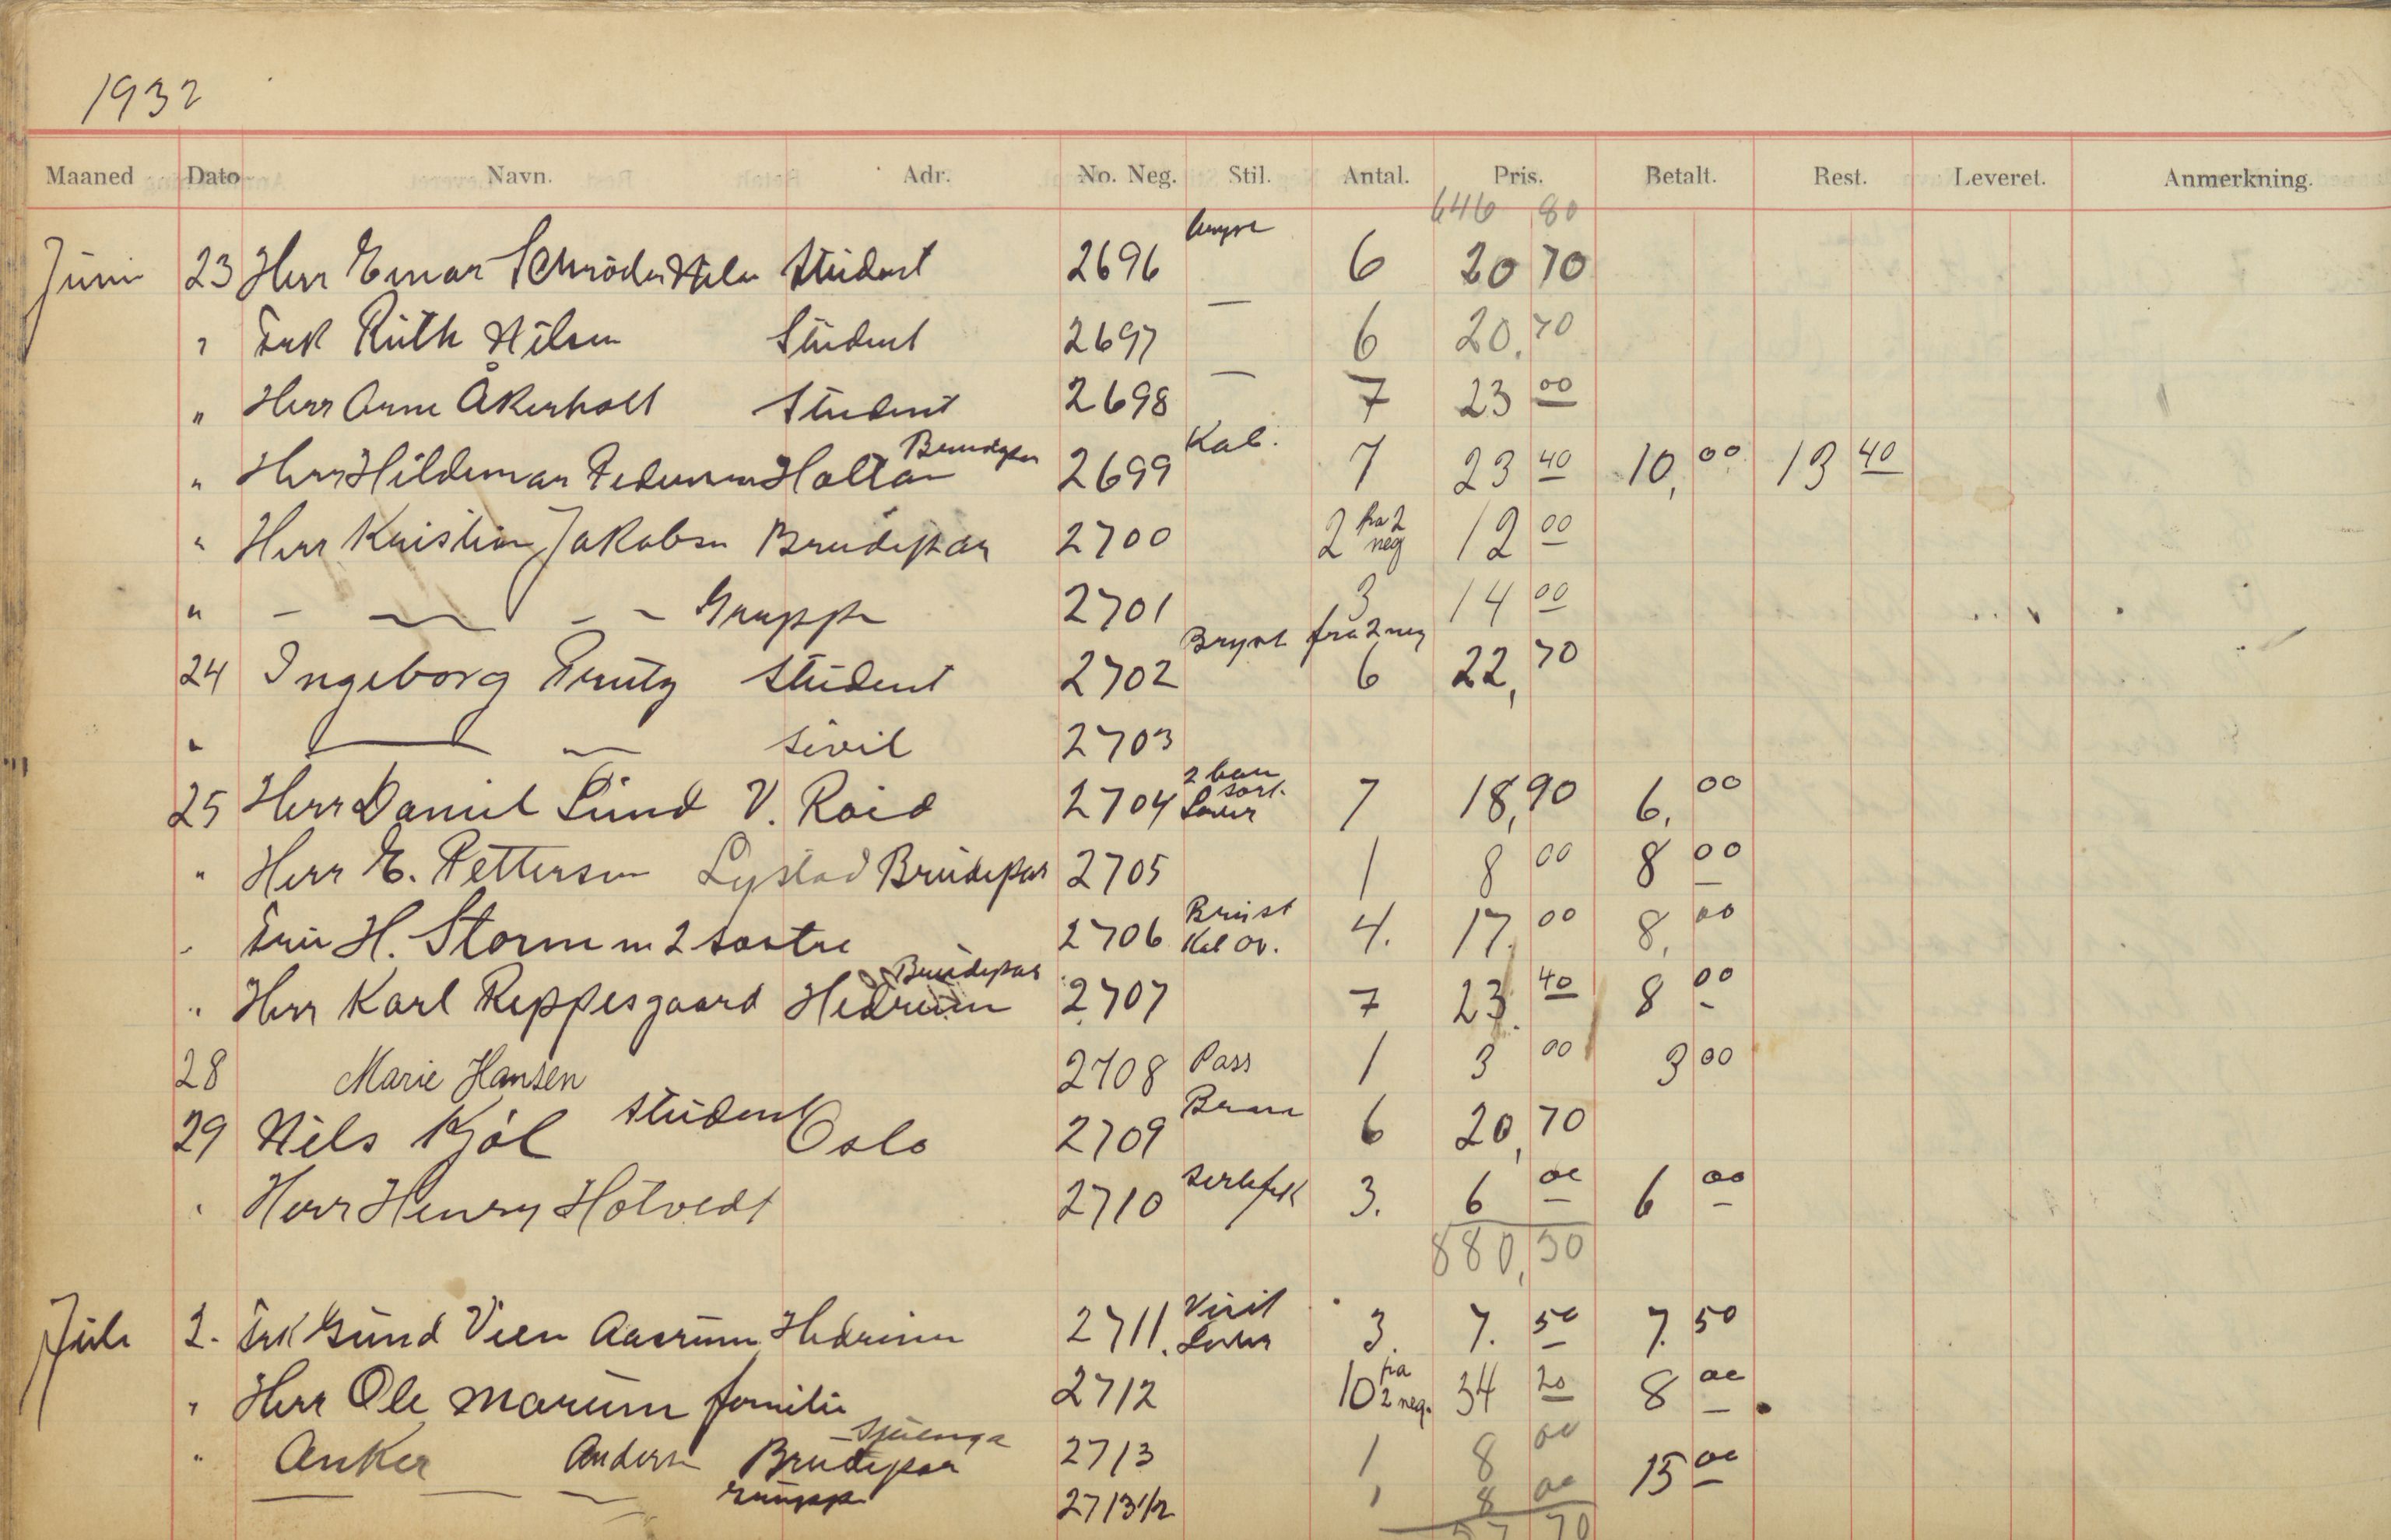 1932
Maaned Dato Navn. Adr. No. Neg. Stil. Antal. Pris. Betalt. Rest. Leveret. Anmerkning.
646 80
Juni 23 Herr Einar Schröder Student 2696 6 20 70
" Frk Ruth Nilsen Student 2697 — 6 20,70
" Herr Arne Åkerholt Student 2698 — 7 23 00
" Herr Hildemar Pedersen Holtan Brudepar 2699 Kab. 7 23 40 10,00 13 40
" Herr Kristian Jakobsen Brudepar 2700 2 fra 2 neg 12 00
" — — — Gruppe 2701 3 14 00
24 Ingeborg Prutz Student 2702 Bryst fra 2 neg 6 22,70
" — — sivil 2703
25 Herr Daniel Lund V. Roid 2704 7 18,90 6,00
" Herr E. Pettersen Lystad Brudepar 2705 1 8 00 8 00
" Fru H. Storm m 2 søstre 2706 Brüst Kab ov. 4. 17.00 8,00
" Herr Karl Reppesgaard Hedrum Brudepar 2707 7 23.40 8 00
28 Marie Hansen 2708 Pass 1 3 00 3 00
29 Nils Kjöl student Oslo 2709 6 20,70
" Herr Henry Hotvedt 2710 3. 6 00 6 00
880,50
Juli 2. Frk Gund Veen Aasrum Hedrum 2711. Visit 3. 7.50 7.50
" Herr Ole Marum familie 2712 10 fra 2 neg. 34 20 8 00
" Anker Andersen Brudepar 2713 1 8 00 15 00
— — — 2713 1/2 1 8 00
70